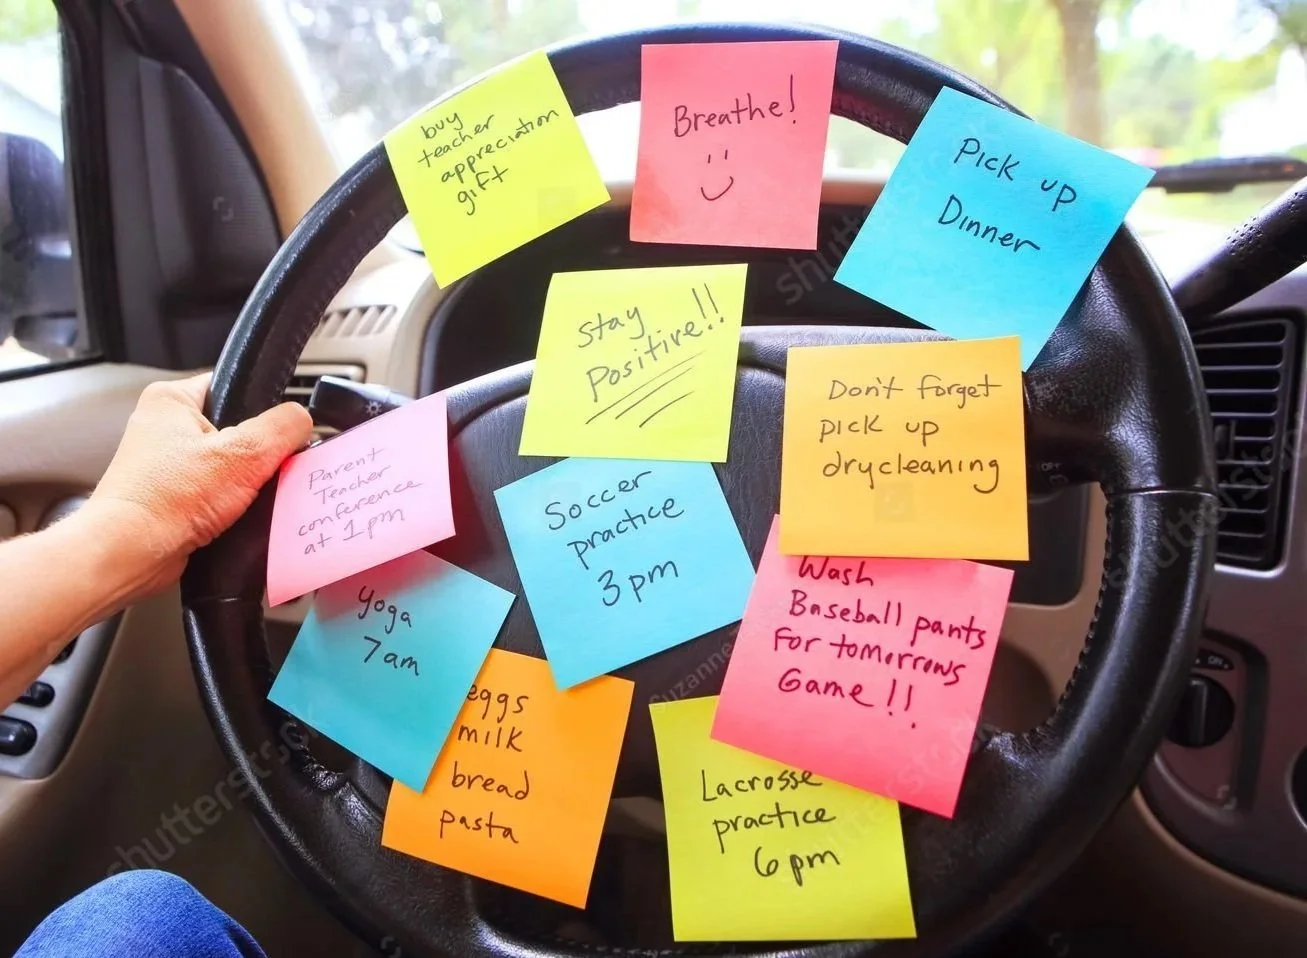 buy
teacher
appreciation
gift
Breathe!
Pick up
Dinner
Stay
Positive!!
Don't forget
pick up
drycleaning
Parent
Teacher
conference
at 1pm
Soccer
practice
3pm
Wash
Baseball pants
For tomorrows
Game!!
yoga
7am
eggs
milk
bread
pasta
Lacrosse
practice
6pm
shutterstock
OFF